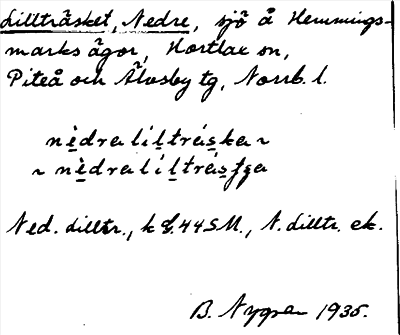 Lillträsket, Nedre, sjö å Hemmings-
marks ägor, Hortlax sn,
Piteå och Älvsby tg, Norrb. l.
nèdra lìḷtráska ~
~ nèdra lìḷtrásʃɡa
Ned. Lilltr., k bl. 44 S.M., N. Lilltr. ek.
B. Nygren 1935.